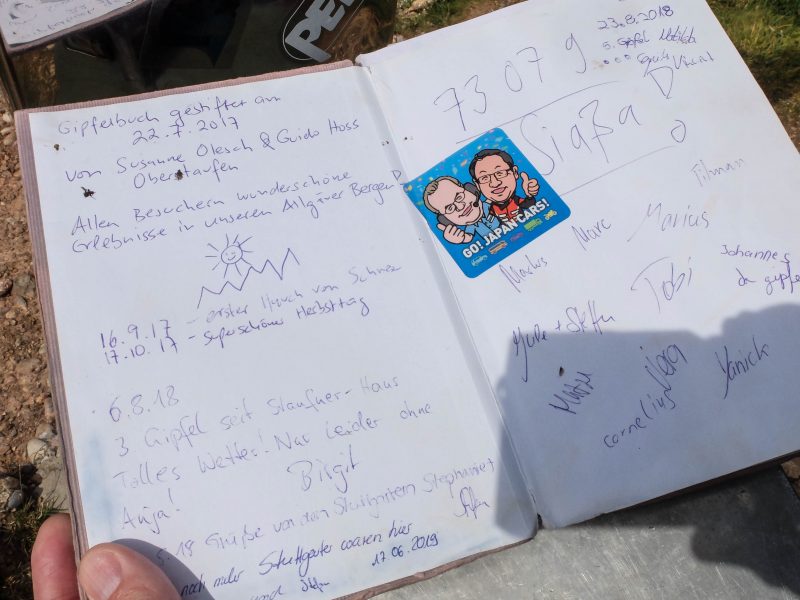 PE
Gipfelbuch gestiftet am
22.7.2017
von Susanne Olesch & Guido Hoss
Oberstaufen
Allen Besuchern wunderschöne
Erlebnisse in unseren Allgäuer Bergen
16.9.17 - erster Hauch von Schnee
17.10.17 - superschöner Herbsttag
6.8.18
3. Gipfel seit Staufner-Haus
Tolles Wetter! Nur leider ohne
Anja! Birgit
18 Grüße von den Stuttgartern Stephanie +
Steffen
noch mehr Stuttgarter waren hier
17.06.2019
und
23.8.2018
73079
Siaßa
GO! JAPAN CARS!
Markus Marc Marius Tilman
Jule + Steffen Tobi Johannes
da gipfe
Nora Yanick
cornelius